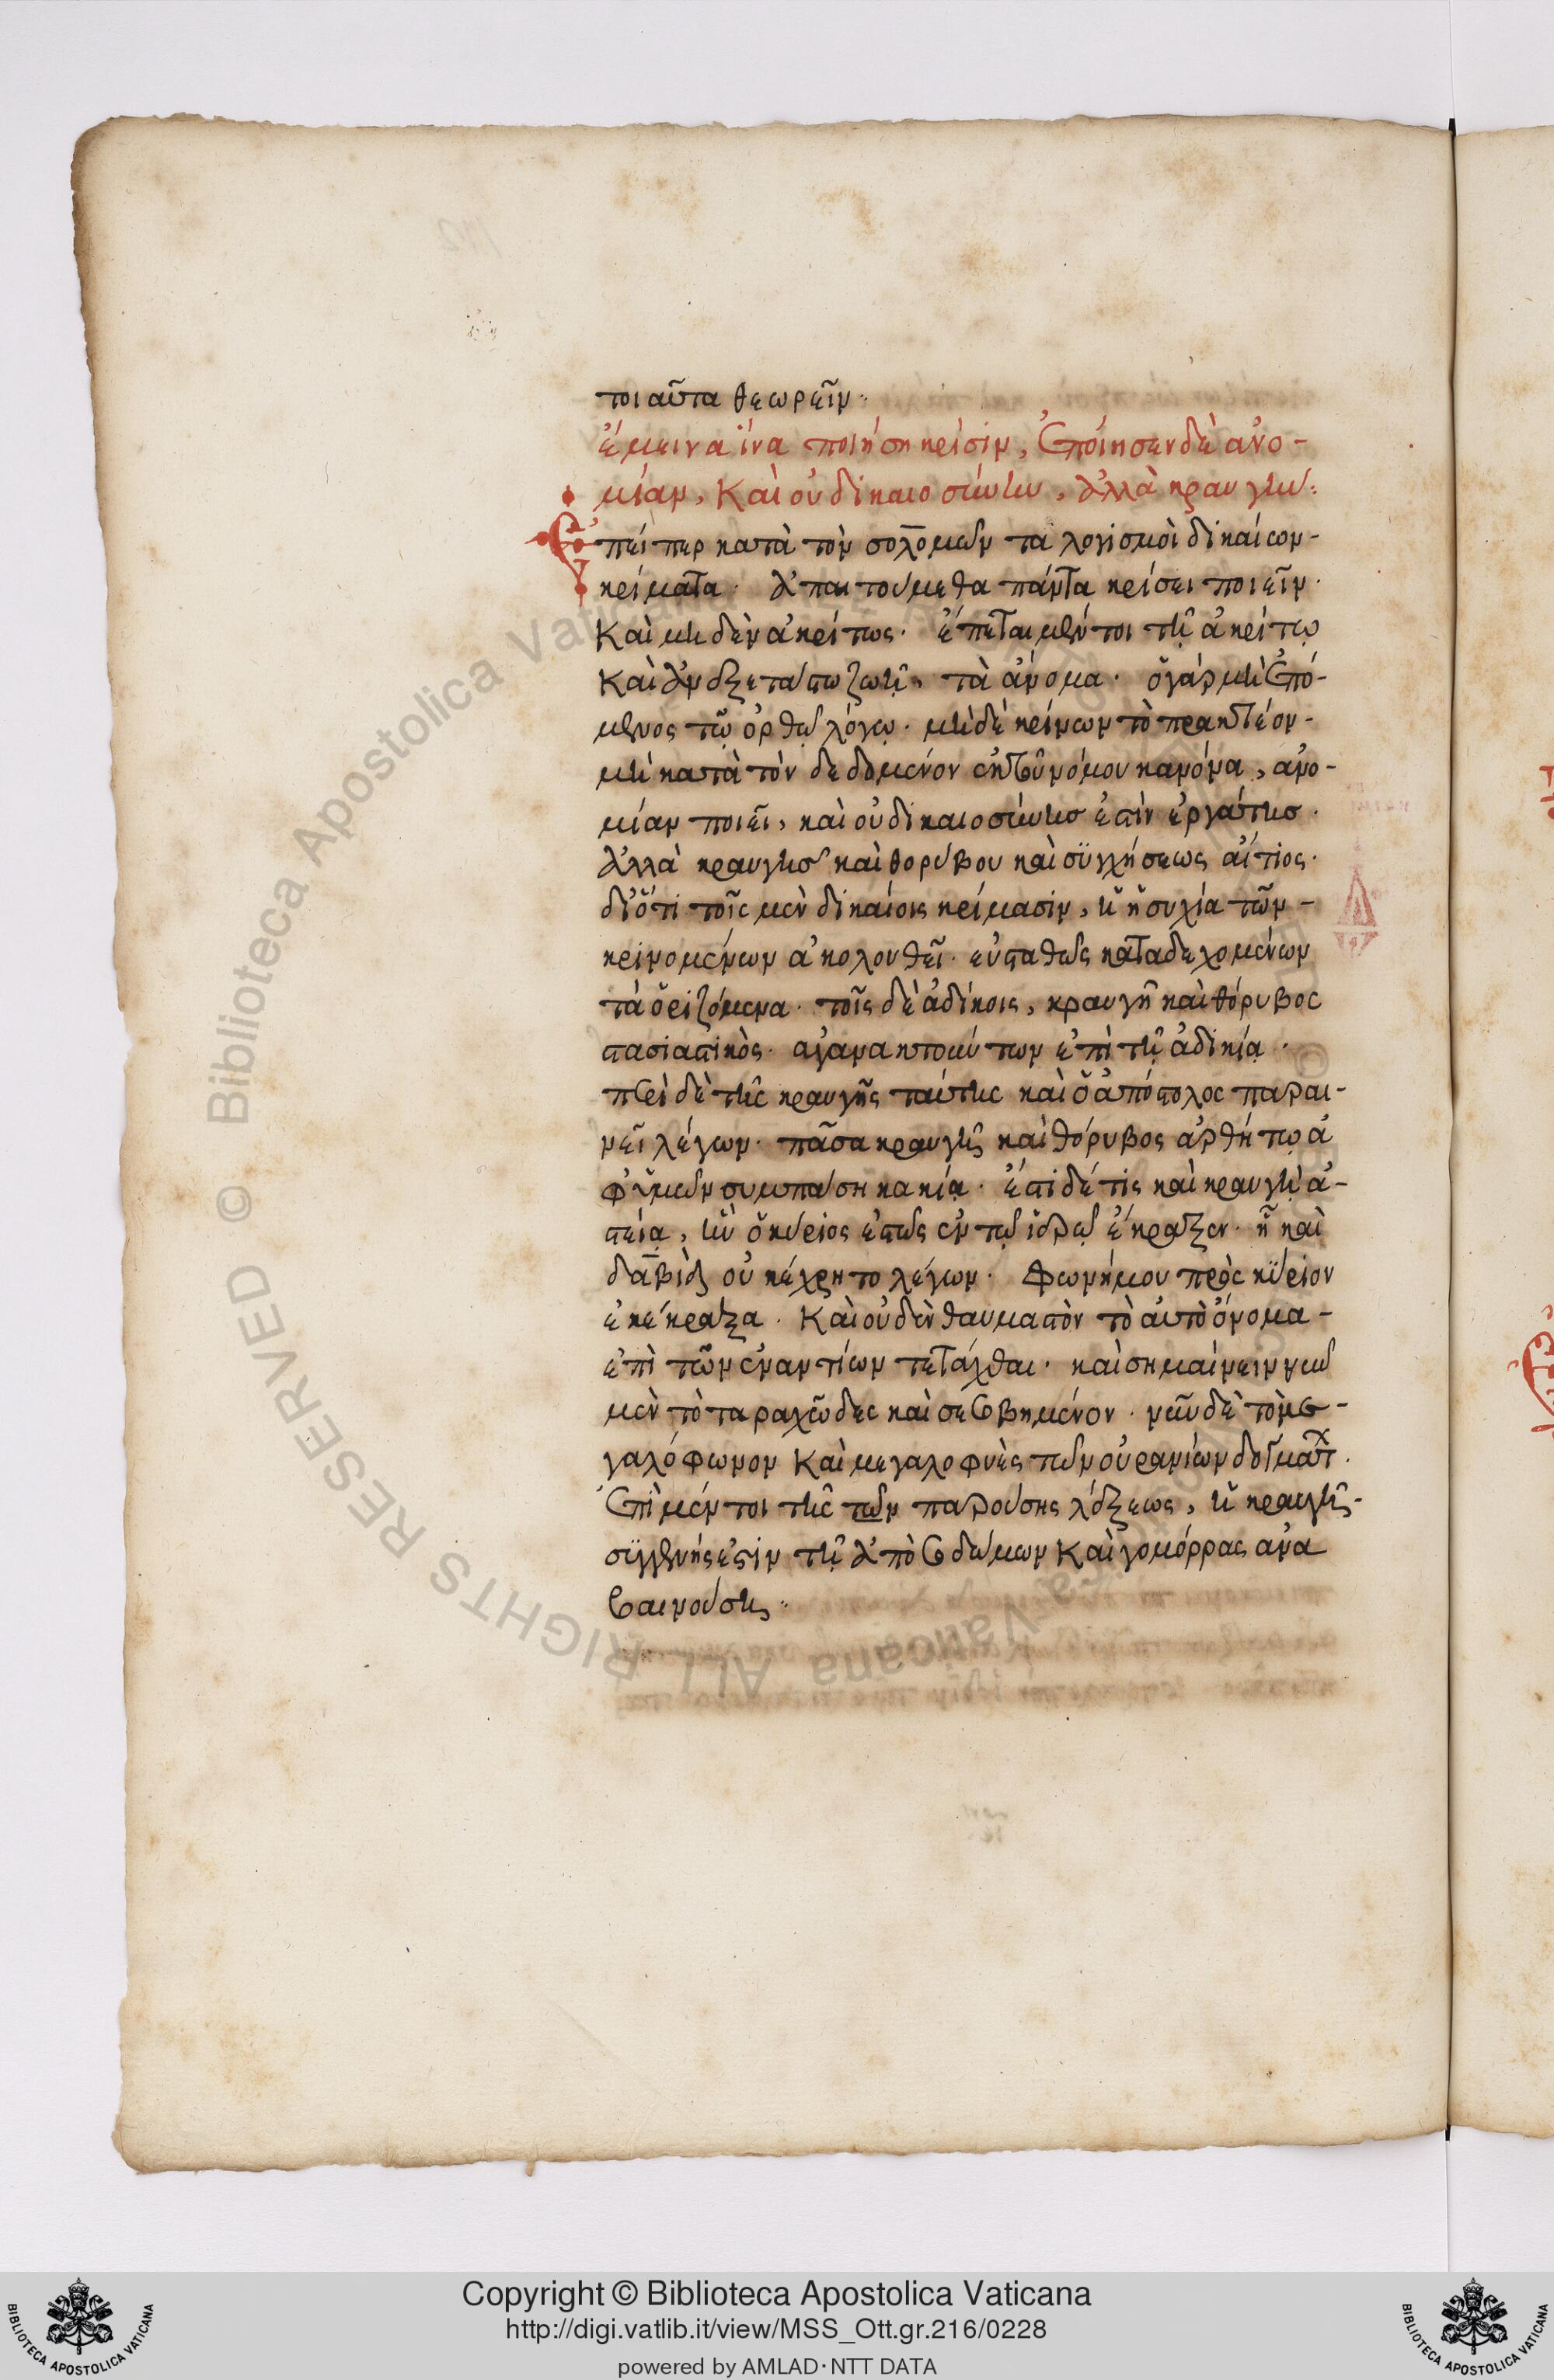 τοιαῦτα θεωρεῖν··
ἔμεινα ἵνα ποιήση κρίσιν, ἐποίησεν δὲ ἀνο-
μίαν, καὶ οὐ δικαιοσύνην, ἀλλὰ κραυγήν:
Ἐπείπερ κατὰ τὸν σολομῶν τα λογισμοὶ δικαίων-
κρίματα· ἀπαιτούμεθα πάντα κρίσει ποιεῖν·
Καὶ μηδὲν ἀκρίτως· ἕπεται μέντοι τῆ ἀκρίτω
Καὶ ἀνεξετάστω ζωῆ, τὰ ἄνομα· ὁ γάρ μὴ ἑπό-
μενος τῶ ὀρθῶ λόγω· μηδὲ κρίνων τὸ πρακτέον-
μὴ κατὰ τὸν δεδομένον ἐκ τοῦ νόμου κανόνα, ἀνο-
μίαν ποιεῖ, καὶ οὐ δικαιοσύνης ἐστὶν ἐργάτης·
ἀλλὰ κραυγῆς καὶ θορύβου καὶ συγχήσεως αἴτιος·
διότι τοῖς μὲν δικαίοις κρίμασιν, ἡ ἡσυχία τῶν-
κρινομένων ἀκολουθεῖ· εὐσταθῶς καταδεχομένων
τὰ ὁριζόμενα· τοῖς δὲ ἀδίκοις, κραυγὴ καὶ θόρυβος
στασιαστικὸς· ἀγανακτούντων ἐπὶ τῆ ἀδικία·
περὶ δὲ τῆς κραυγῆς ταύτης καὶ ὁ ἀπόστολος παραι-
νεῖ λέγων· πᾶσα κραυγὴ καὶ θόρυβος ἀρθήτω ἀ
φ' ὑμῶν συμπάση κακία· ἔστι δέ τις καὶ κραυγὴ ἀ-
στεία, ἣν ὁ κύριος ἑστὼς ἐν τῶ ἱερῶ ἔκραξεν· ἧ καὶ
δαβὶδ οὐ κέχρητο λέγων· Φωνή μου πρὸς κύριον
ἐκέκραξα· Καὶ οὐδὲν θαυμαστὸν τὸ αὐτὸ ὄνομα-
ἐπὶ τῶν ἐναντίων τετάχθαι· καὶ σημαίνειν νῦν
μὲν τὸ ταραχῶδες καὶ σεσοβημένον· νῦν δὲ τὸ με-
γαλόφωνον Καὶ μεγαλοφυὲς τῶν οὐρανίων δογμάτ·
Ἐπὶ μέντοι τῆς τῶν παρούσης λέξεως, ἡ κραυγὴ-
συγγενής ἐστιν τῆ ἀπὸ σοδώμων Καὶ γομόρρας ἀνα
βαινούσης··
Copyright © Biblioteca Apostolica Vaticana
http://digi.vatlib.it/view/MSS_Ott.gr.216/0228
powered by AMLAD·NTT DATA